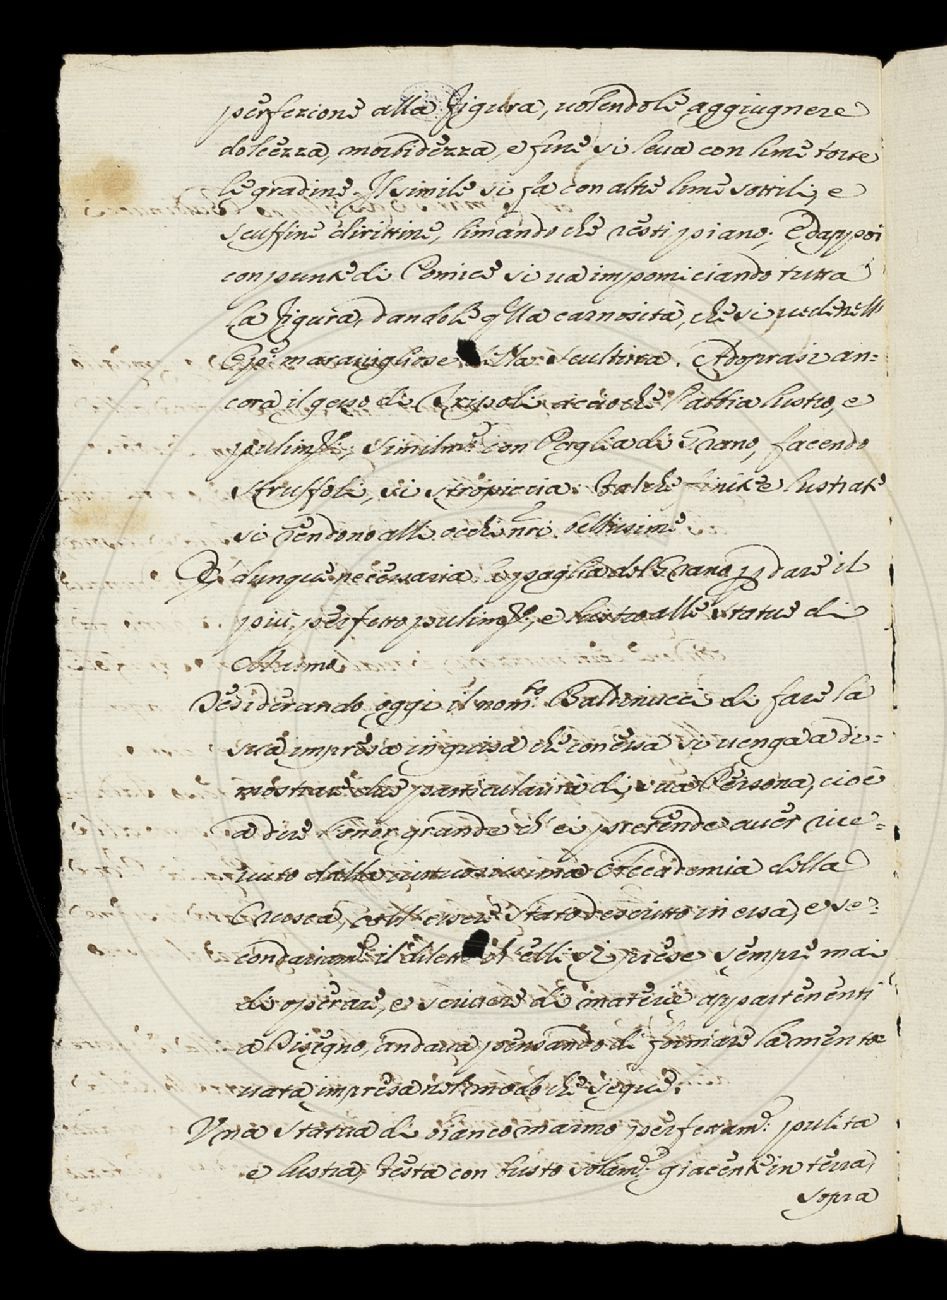 perfezione alla Figura, uolendole aggiugnere
dolcezza, morbidezza, e fine si leua con lime torte
le gradine. Il simile si fa con altre lime sottili, e
scuffine dirittine, limando che resti piano; Edappoi
con punte di Pomice si ua impomiciando tutta
la Figura, dandole qlla carnosità, che si uede nell'
Opē marauigliose della Scultura. Adoprasi an=
cora il gesso di Tripoli acciochè l'abbia lustro, e
pulimto; Similmte con Paglia di Grano, facendo
struffoli, si stropiccia. Talchè finite e lustrate
si rendono alli occhi nrī bellissime.
E' dunque necessaria la paglia del Grano p dare il
più perfetto pulimto, e lustro alle statue di
Marmo
Desiderando oggi il nomto Baldinucci di fare la
sua impresa in guisa che con essa si uenga a di=
mostrare due particularità di sua Persona, cioè
a dire l'onor grande ch' ei pretende auer rice=
uuto dalla uirtuosissima Accademia della
Crusca, coll' essere stato descritto in essa, e se=
condariamte il diletto ch' elli si prese sempre mai
di operare, e scriuere di materie appartenenti
a Disegno, andaua pensando di formare la mento=
uata impresa nel modo che segue.
Una Statua di bianco marmo perfettamte pulita
e lustra, testa con busto solamte giacente in terra,
sopra